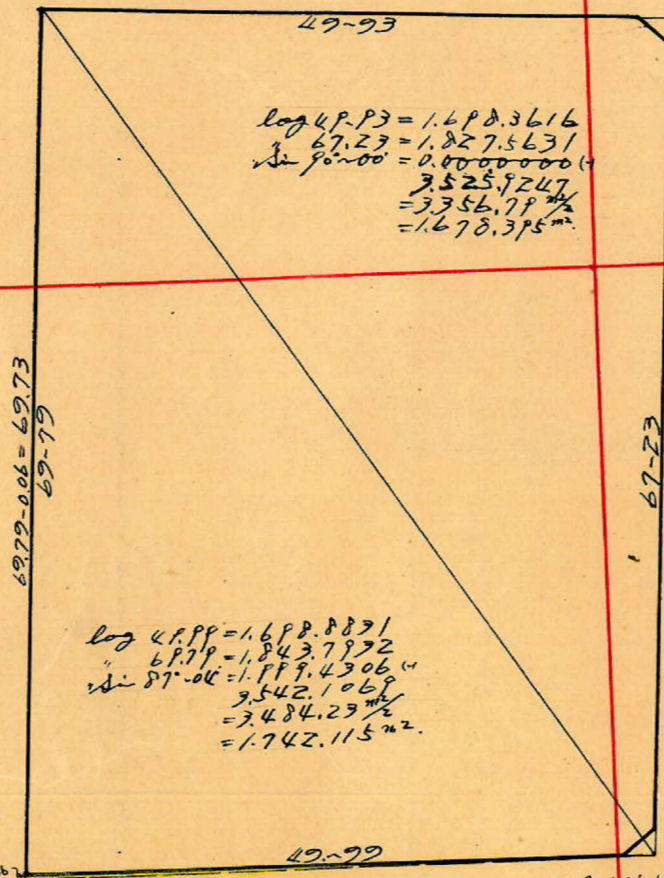 49~93
log 49.93 = 1.698.3616
〃 67.23 = 1.827.5631
Sin 90°~00' = 0.0000000 (+
3.525.9247
= 3.356.79 m²/2
= 1.678.395 m².
69.79-0.06 = 69.73
69~79
67~23
log 49.99 = 1.698.8831
〃 69.79 = 1.843.7932
Sin 87°~04' = 1.999.4306 (+
3.542.1069
= 3.484.23 m²/2
= 1.742.115 m².
49.~99